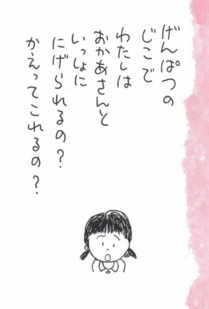 げんぱつの
じこで
わたしは
おかあさんと
いっしょに
にげられるの？
かえってこれるの？